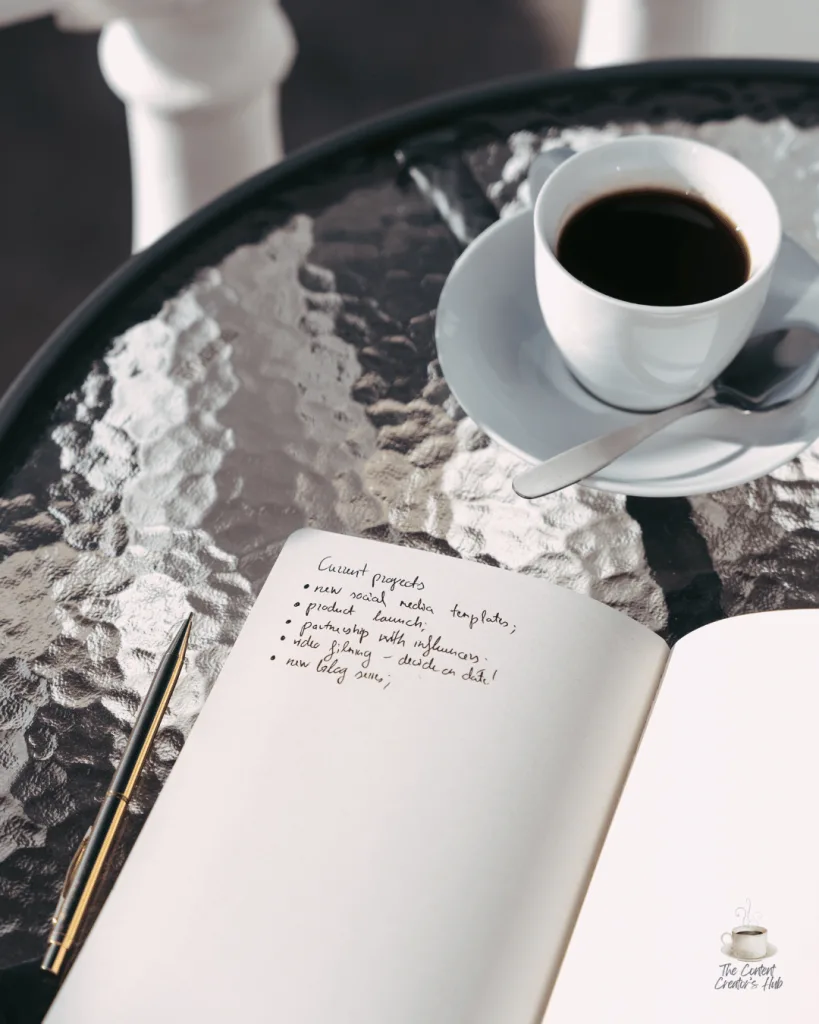 Current projects
• new social media templates;
• product launch;
• partnership with influencers.
• video filming – decide on date!
• new blog series;
The Content
Creator's Hub